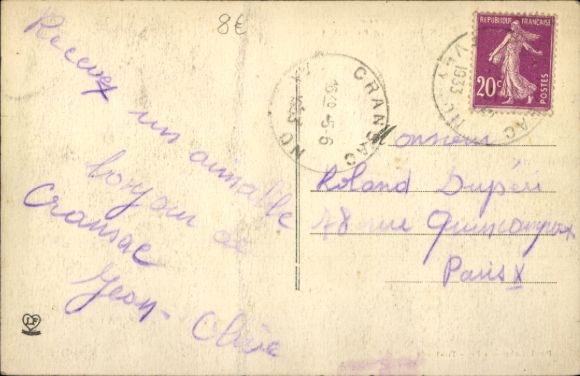 8€
Recevez
un aimable
bonjour de
Cransac
Jean-Claire
CRANSAC
16 10 5-6
1933
REPUBLIQUE FRANÇAISE
20c
POSTES
1933
Monsieur
Roland Dupéri
78 rue Quincampoix
Paris X
LF